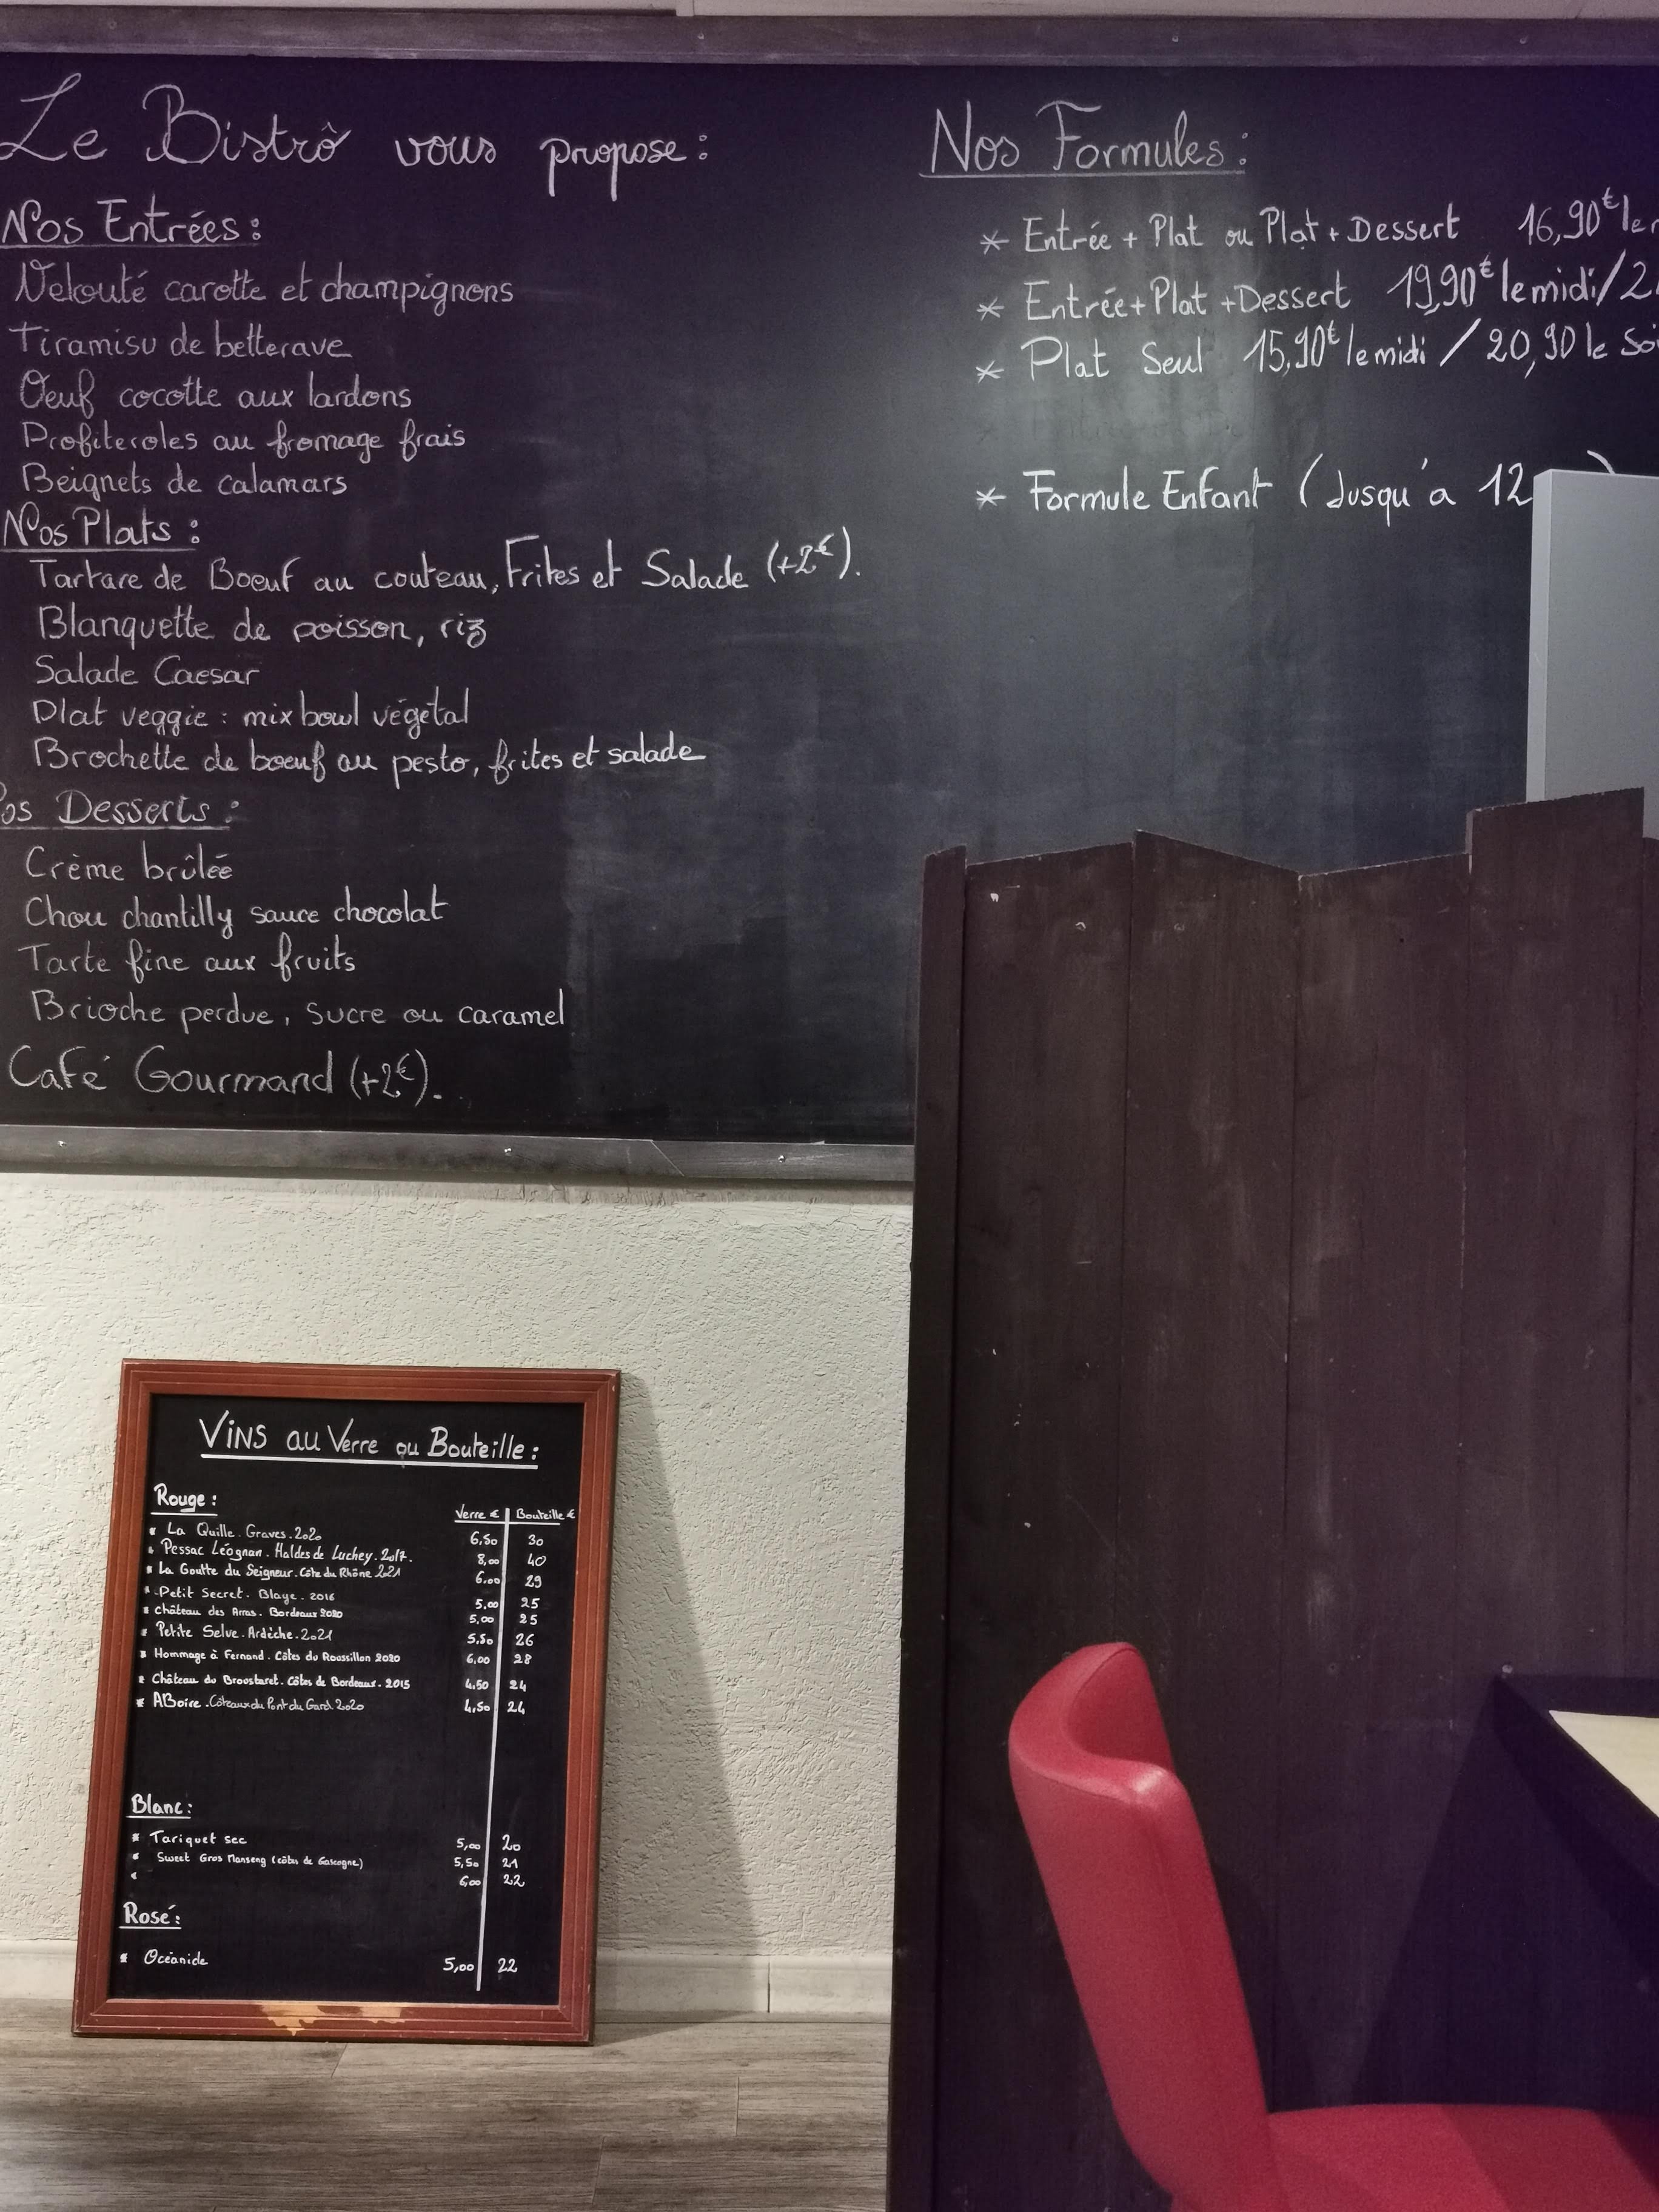 Le Bistrô vous propose :
Nos Entrées :
Velouté carotte et champignons
Tiramisu de betterave
Œuf cocotte aux lardons
Profiteroles au fromage frais
Beignets de calamars
Nos Plats :
Tartare de Boeuf au couteau, Frites et Salade (+2€).
Blanquette de poisson, riz
Salade Caesar
Plat veggie : mix bowl végétal
Brochette de boeuf au pesto, frites et salade
os Desserts :
Crème brûlée
Chou chantilly sauce chocolat
Tarte fine aux fruits
Brioche perdue, sucre ou caramel
Café Gourmand (+2€).
Nos Formules :
* Entrée + Plat ou Plat + Dessert 16,90€ le
* Entrée + Plat + Dessert 19,90€ le midi / 2
* Plat Seul 15,90€ le midi / 20,90 le Soi
* Formule Enfant (Jusqu'a 12 )
Vins au Verre ou Bouteille :
Rouge :
Verre € Bouteille €
* La Quille . Graves . 2020 6,50 30
* Pessac Léognan . Haldes de Luchey . 2017. 8,00 40
* La Goutte du Seigneur . Côte du Rhône 2021 6,00 29
* Petit Secret . Blaye . 2016 5,00 25
* Château des Arras . Bordeaux 2020 5,00 25
* Petite Selve . Ardèche . 2021 5,50 26
* Hommage à Fernand . Côtes du Roussillon 2020 6,00 28
* Château du Broustaret . Côtes de Bordeaux . 2015 4,50 24
* ABoire . Côteaux du Pont du Gard 2020 4,50 24
Blanc :
* Tariquet sec 5,00 20
* Sweet Gros Manseng (côtes de Gascogne) 5,50 21
* 6,00 22
Rosé :
* Océanide 5,00 22